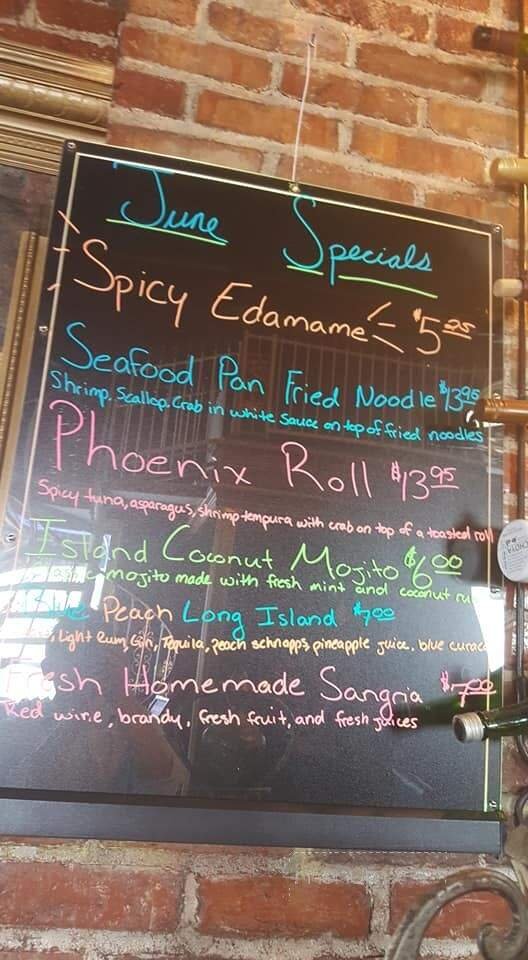 June Specials
Spicy Edamame $5.95
Seafood Pan Fried Noodle $13.95
Shrimp, Scallop, Crab in white sauce on top of fried noodles
Phoenix Roll $13.95
Spicy tuna, asparagus, shrimp tempura with crab on top of a toasted roll
Island Coconut Mojito $6.00
mojito made with fresh mint and coconut
Blue Peach Long Island $7.00
Light Rum, Gin, Tequila, peach schnapps, pineapple juice, blue
Fresh Homemade Sangria $7.00
Red wine, brandy, fresh fruit, and fresh juices